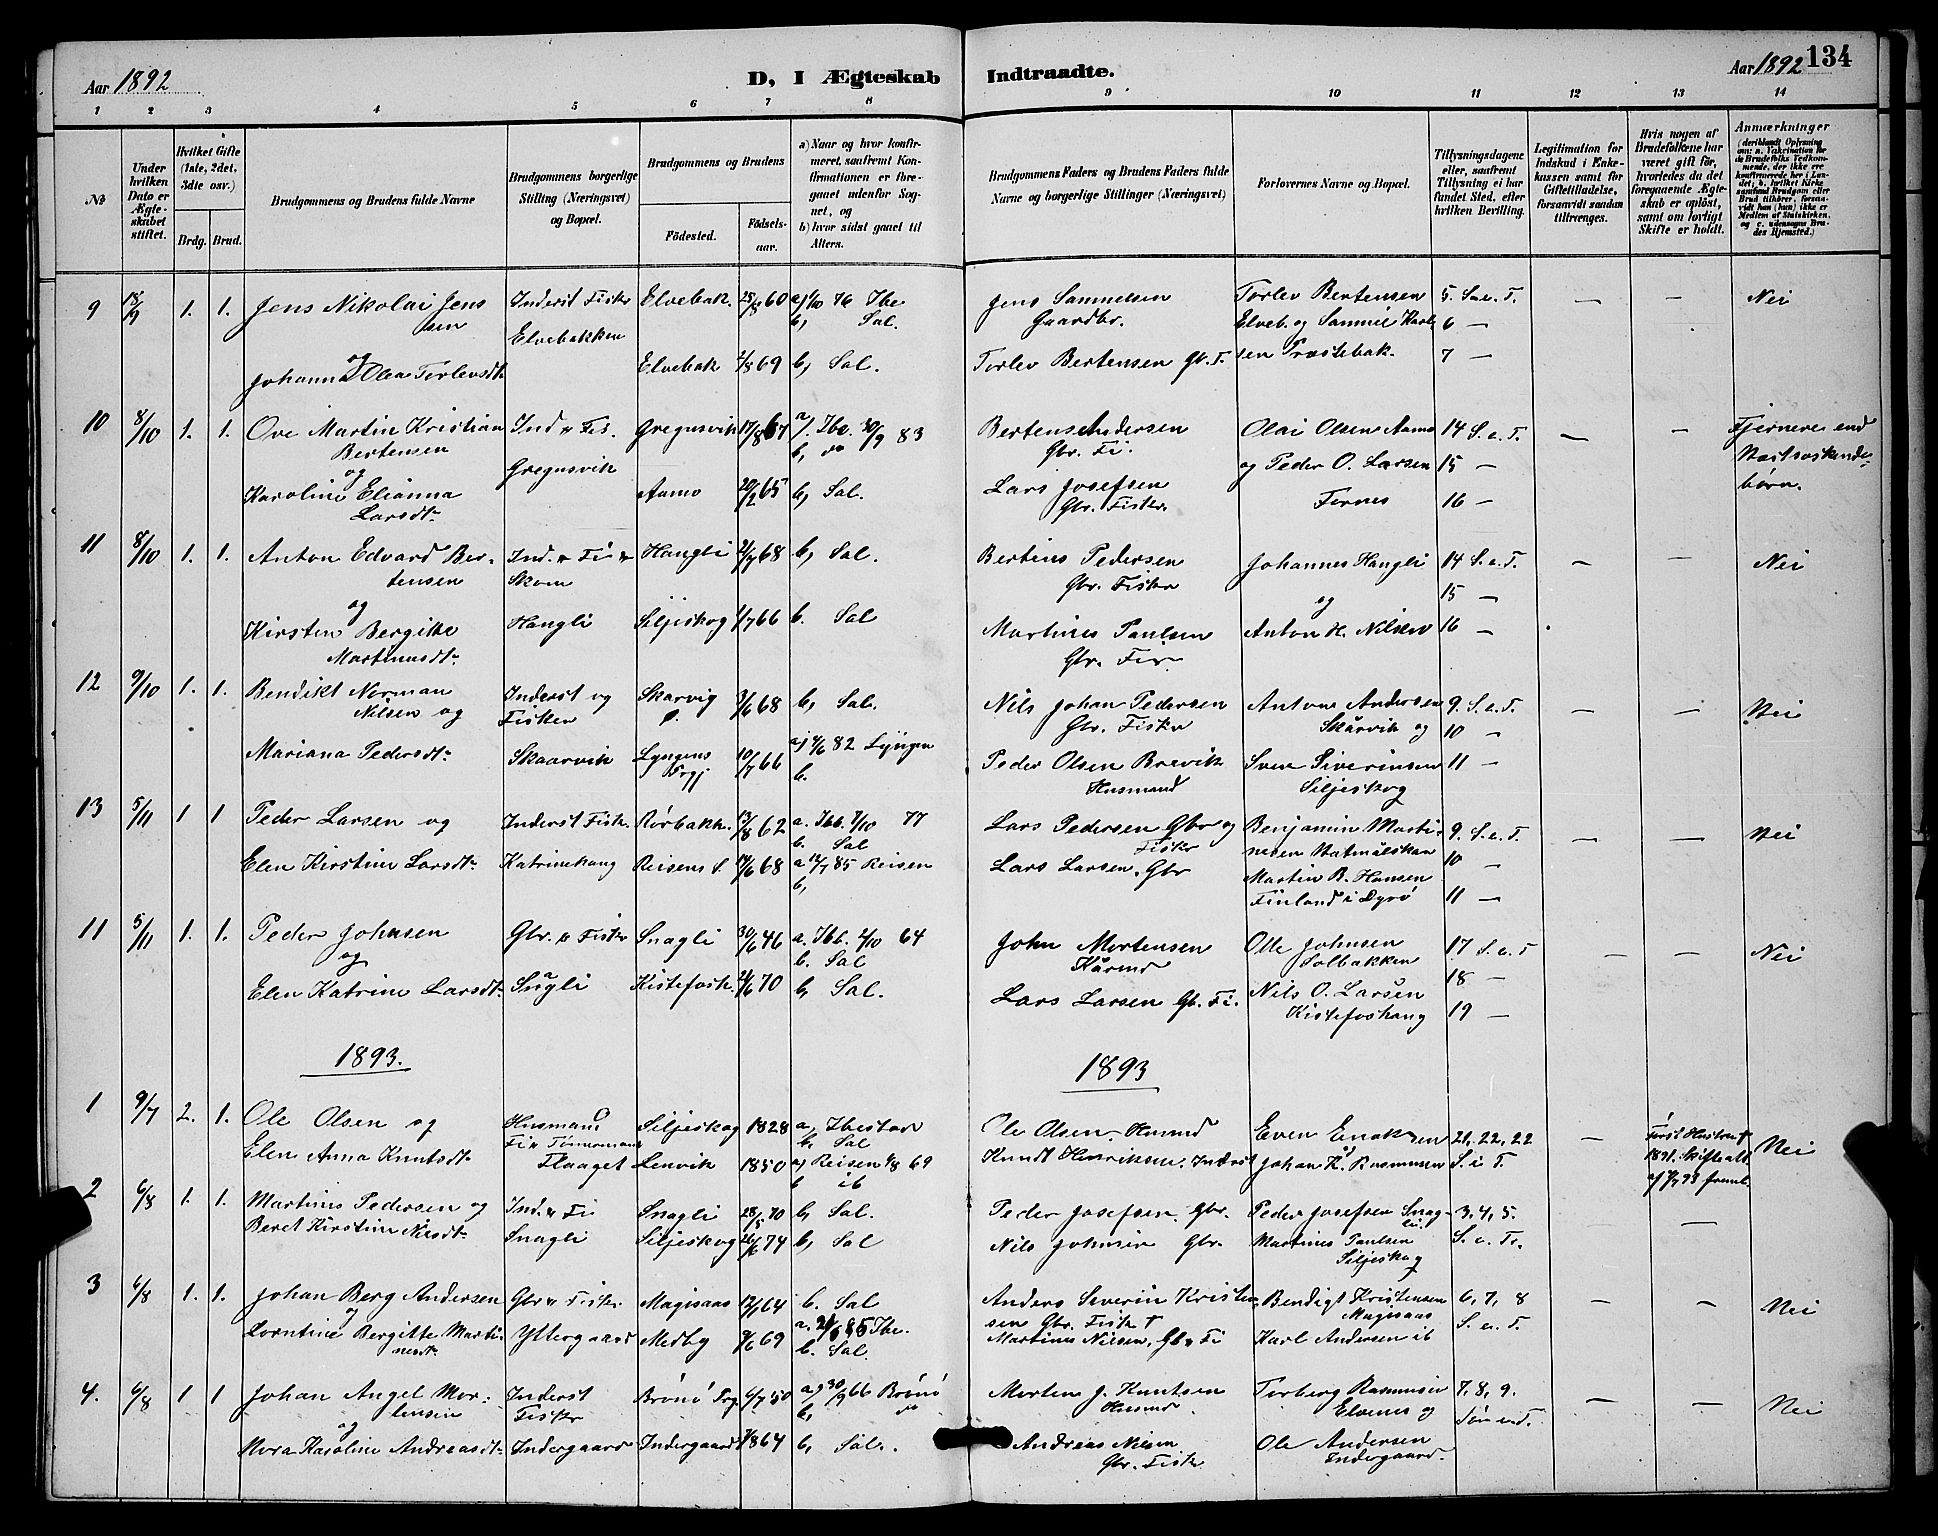 Aar 1892
D, I Ægteskab
Indtraadte.
Aar 1892
134
1 2 3 4 5 6 7 8 9 10 11 12 13 14
№
Under hvilken Dato er Ægteskabet stiftet.
Hvilket Gifte (1ste, 2det, 3dte osv.)
Brdg. Brud.
Brudgommens og Brudens fulde Navne
Brudgommens borgerlige Stilling (Næringsvei) og Bopæl.
Brudgommens og Brudens
Födested.
Födselsaar.
a) Naar og hvor konfirmeret, saafremt Konfirmationen er foregaaet udenfor Sognet, og
b) hvor sidst gaaet til Alters.
Brudgommens Faders og Brudens Faders fulde Navne og borgerlige Stillinger (Næringsvei)
Forlovernes Navne og Bopæl.
Tillysningsdagene eller, saafremt Tillysning ei har fundet Sted, efter hvilken Bevilling.
Legitimation for Indskud i Enkekassen samt for Giftetilladelse, forsaavidt saadan tiltrænges.
Hvis nogen af Brudefolkene har været gift för, hvorledes da det foregaaende Ægteskab er oplöst, samt om lovligt Skifte er holdt.
Anmærkninger
(deriblandt Oplysning om: a. Vakcination for de Brudefolks Vedkommende, der ikke ere konfirmerede her i Landet; b. hvilket Kirkesamfund Brudgom eller Brud tilhörer, forsaavidt han (hun) ikke er Medlem af Statskirken, og c. udensogns Brudes Hjemsted.)
9 18/9 1. 1. Jens Nikolai Jens Inderst Fisker Elvebak. 25/8 60 a, 1/10 76 Ibe Jens Samuelsen Torlev Bertensen 5. S. e. T. — — Nei
sen Elvebakken b, Sal. Gaardbr. Elveb. og Samuel Karl 6 —
og
Johanna Olea Torlevsdt. Elvebak 2/8 69 b, Sal. Torlev Bertensen Gb. F. sen Præstebak. 7 —
10 8/10 1. 1. Ove Martin Kristian Ind. Fis. Gregusvik 17/8 67 a/. Ibe. 30/9 83 Bertens Andersen Olai Olsen Aamo 14 S. e. T. — — Fjernere end
Bertensen Gregusvik b, do Gbr. Fi. og Peder O. Larsen 15 — Næstsøskende
og
Karoline Elianna Aamo 20/2 65 b, Sal. Lars Josefsen Fornes 16 — børn.
Larsdt. Gbr. Fisker.
11 8/10 1. 1. Anton Edvard Ber- Ind. Fi Hangli 2/7 68 b, Sal. Bertins Pedersen Johannes Hangli 14 S. e. T. — — Nei
tensen Skom Gbr. Fisker 15 —
og og
Kirsten Bergitte Hangli Siljeskog 1/7 66 b. Sal Martines Paulsen Anton H. Nilsen 16 —
Martinusdt. Gbr. Fi
12 9/10 1. 1. Bendikt Norman Inderst og Skarvig 3/6 68 b, Sal. Nils Johan Pedersen Antone Andersen 9. S. e. T. — — Nei
Nilsen og Fisker Gbr. Fisker Skårvik og 10 —
Mariana Pedersdt. Skaarvik Lyngens Prgj 10/7 66 a, 4/6 82 Lyngen Peder Olsen Brevik Sven Siverinsen 11 —
b. Husmand Siljeskog
13 5/11 1 1 Peder Larsen og Inderst Fisk. Rørbakk. 13/8 62 a. Ibb. 7/10 77 Lars Pedersen Gbr og Benjamin Marti- 9. S. e. T. — — Nei
b. Sal Fisker nesen 10 —
Elen Kirstine Larsdt. Katrinehaug Reisens S. 7/6 68 a 12/7 85 Reisen Lars Larsen, Gbr Martin B. Hansen
b, Finland i Dyrö 11 —
11 5/11 1. 1. Peder Johnsen Gbr. Fisker Snagli 30/6 46 a. Ibb. 2/10 64 John Mortensen Olle Johnsen 17 S. e. T — — Nei
og b. Sal Kårmd Solbakken 18 —
Elen Katrine Larsdt. Snagli Kistefosh. 24/6 70 b, Sal. Lars Larsen Gb. Fi. Nils O. Larsen
Kistefoshaug 19 —
1893. 1893
1 9/7 2. 1. Ole Olsen og Husmand Siljeskog 1828 a, Ibestad Ole Olsen. Husmd Even Enoksen 21, 22, 22 — Först Hustru †
Fi Tømmermand b. Sal 1891. Skifteatt.
Elen Anna Knutsdt. Flaaget Lenvik 1850 a, Reisen 1/8 69 Knudt Henriksen. Inderst Johan K. Rasmussen S. i T. af 8/7 93 freml. Nei
b ib
2 6/8 1. 1. Martinus Pedersen og Ind. Fi Snagli 28/5 70 b, Sal. Peder Josefsen. Gbr. Peder Josefsen Snagli. 3, 4, 5. — —
Beret Kirstine Nilsdt. Snagli Siljeskog 26/6 74 b, Sal Nils Johnsen Gbr. Martines Paulsen S. e. Tr.
Siljeskog
3 6/8 1. 1. Johan Berg Andersen Gbr Fisker. Magisaas 12/1 64 b. Sal Anders Severin Kristen Bendigt Kristensen 6, 7, 8 — — Nei
og sen Gbr. Fisk † Magisaas
Lorntine Bergitte Marti- Yttergaard Medby 9/6 69 a. 21/6 85 Ibe. Martinus Nilsen, Gb. Fi Karl Andersen ib S. e. T.
nusdt. b. Sal.
4. 6/8 1 1 Johan Angel Mor- Inderst Brönö Prg. 6/7 50 a, 30/9 66 Brönö Morten J. Knutsen Torberg Rasmusen 7, 8, 9. — — Nei
tensen Fisker b, do Husmd Elvenes og
og
Nora Karoline Andreasdt. Indergaard Indergaard 1/8 64 b, Sal. Andreas Nilsen Ole Andersen
Gbr. Fisk Indergaard.